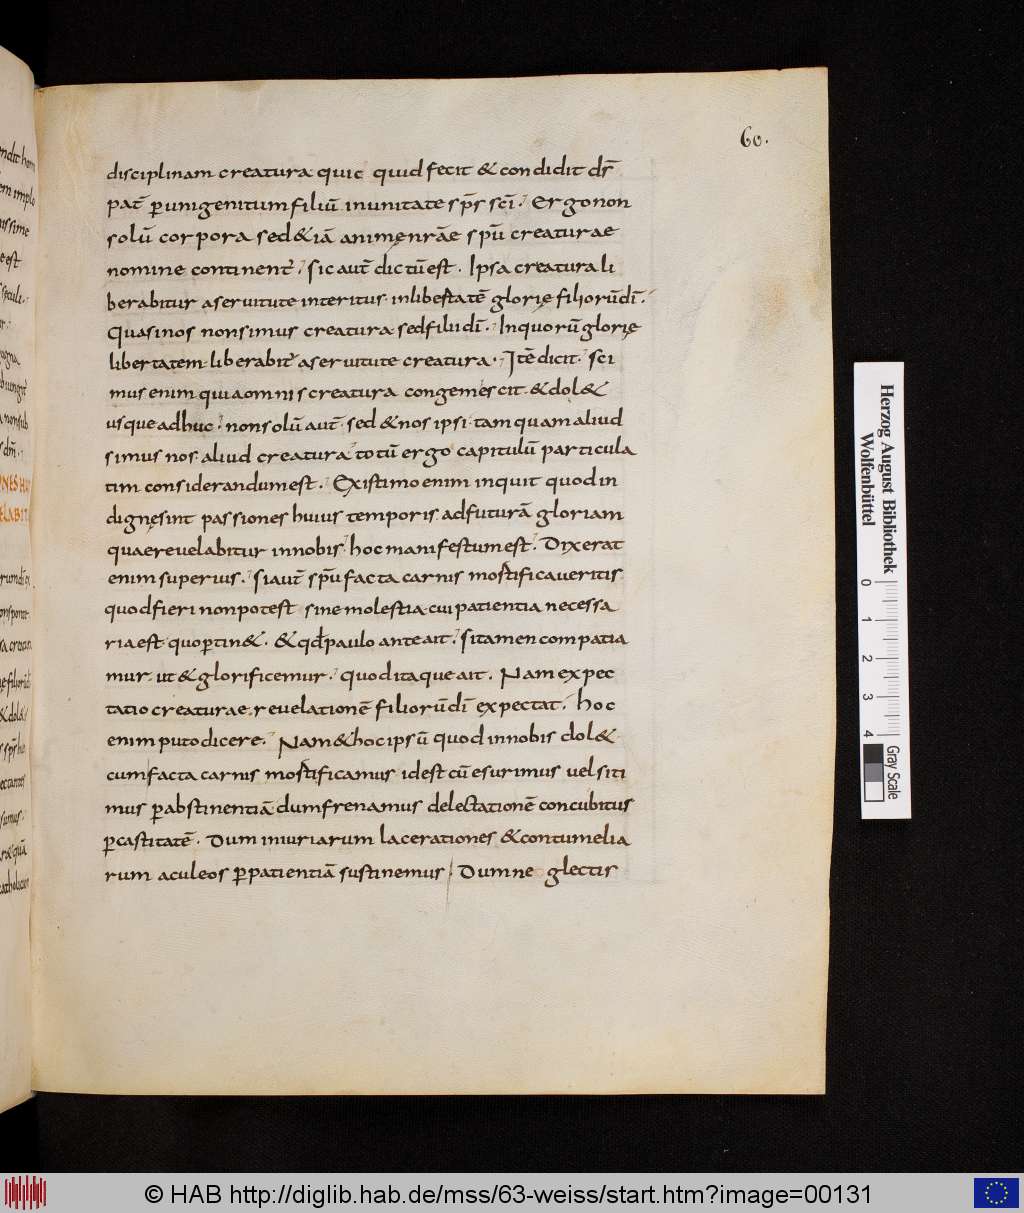 60.
disciplinam creatura quic quid fecit & condidit dr̄
pat̄ p̱ unigenitum filiū in unitate sp̄s sc̄i. Ergo non
solū corpora sed & iā animę nr̄ae sp̄u creaturae
nomine continent̄. sic aut̄ dictū est. Ipsa creatura li
berabitur a servitute interitus. in libertatē glorię filiorū dī.
Quasi nos non simus creatura sed filii dī. In quorū glorię
libertatem liberabit̄ a servitute creatura. Itē dicit. sci
mus enim quia omnis creatura congemescit & dol&
usque adhuc. non solū aut̄. sed & nos ipsi. tam quam aliud
simus nos aliud creatura totū ergo capitulū particula
tim considerandum est. Existimo enim inquit quod in
dignę sint passiones huius temporis ad futurā gloriam
quae revelabitur in nobis. hoc manifestum est. Dixerat
enim superius. si aut̄ sp̄u facta carnis mortificaveritis
quod fieri non potest sine molestia cui patientia necessa
ria est quo p̱tin&. & qđ paulo ante ait. si tamen compatia
mur. ut & glorificemur. quod itaque ait. Nam expec
tatio creaturae. revelationē filiorū dī expectat. hoc
enim puto dicere. Nam & hoc ipsū quod in nobis dol&
cum facta carnis mortificamus id est cū esurimus vel siti
mus p̱ abstinentiā dum frenamus delectationē concubitus
p̱ castitatē. Dum iniuriarum lacerationes & contumelia
rum aculeos p̱ patientiā sustinemus. Dum neglectis
Herzog August Bibliothek
Wolfenbüttel
0 1 2 3 4
Gray Scale
© HAB http://diglib.hab.de/mss/63-weiss/start.htm?image=00131